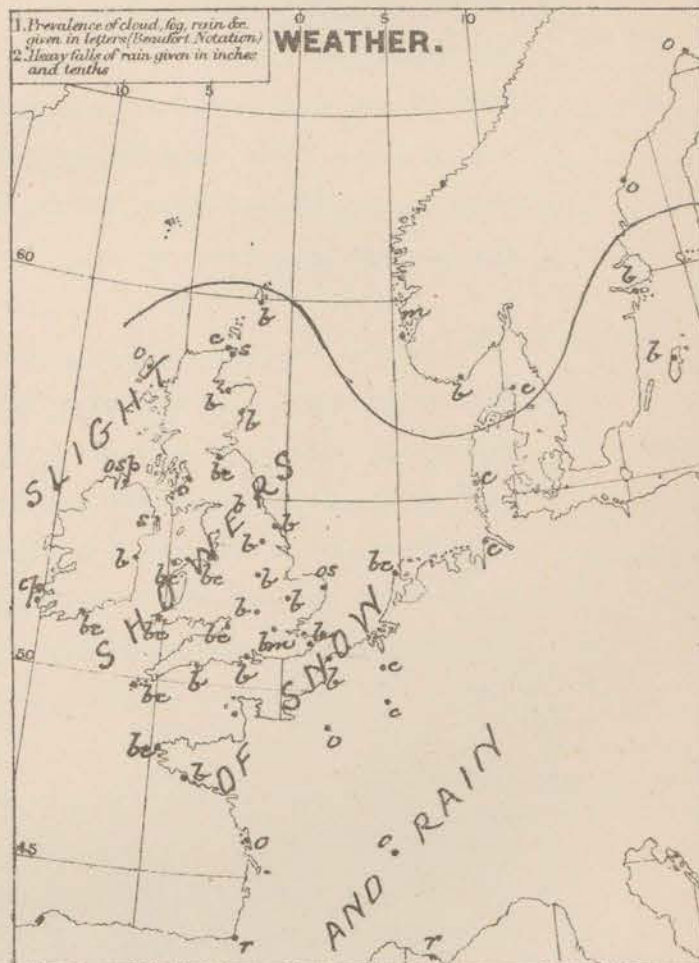 1. Prevalence of cloud, fog, rain &c.
given in letters (Beaufort Notation)
2. Heavy falls of rain given in inches
and tenths
WEATHER.
10 5 0 5
60
50
45
SLIGHT
SHOWERS
OF SNOW
AND RAIN
o
o
b
b
m
b
c
s
o
b
b
b
c
osp
bc
o
b
c
s
b
b
b
bc
c
cp
bc
bc
b
b
os
bc
bc
bc
b
bm
b
bc
b
b
b
c
c
o
bc
b
o
o
r
r